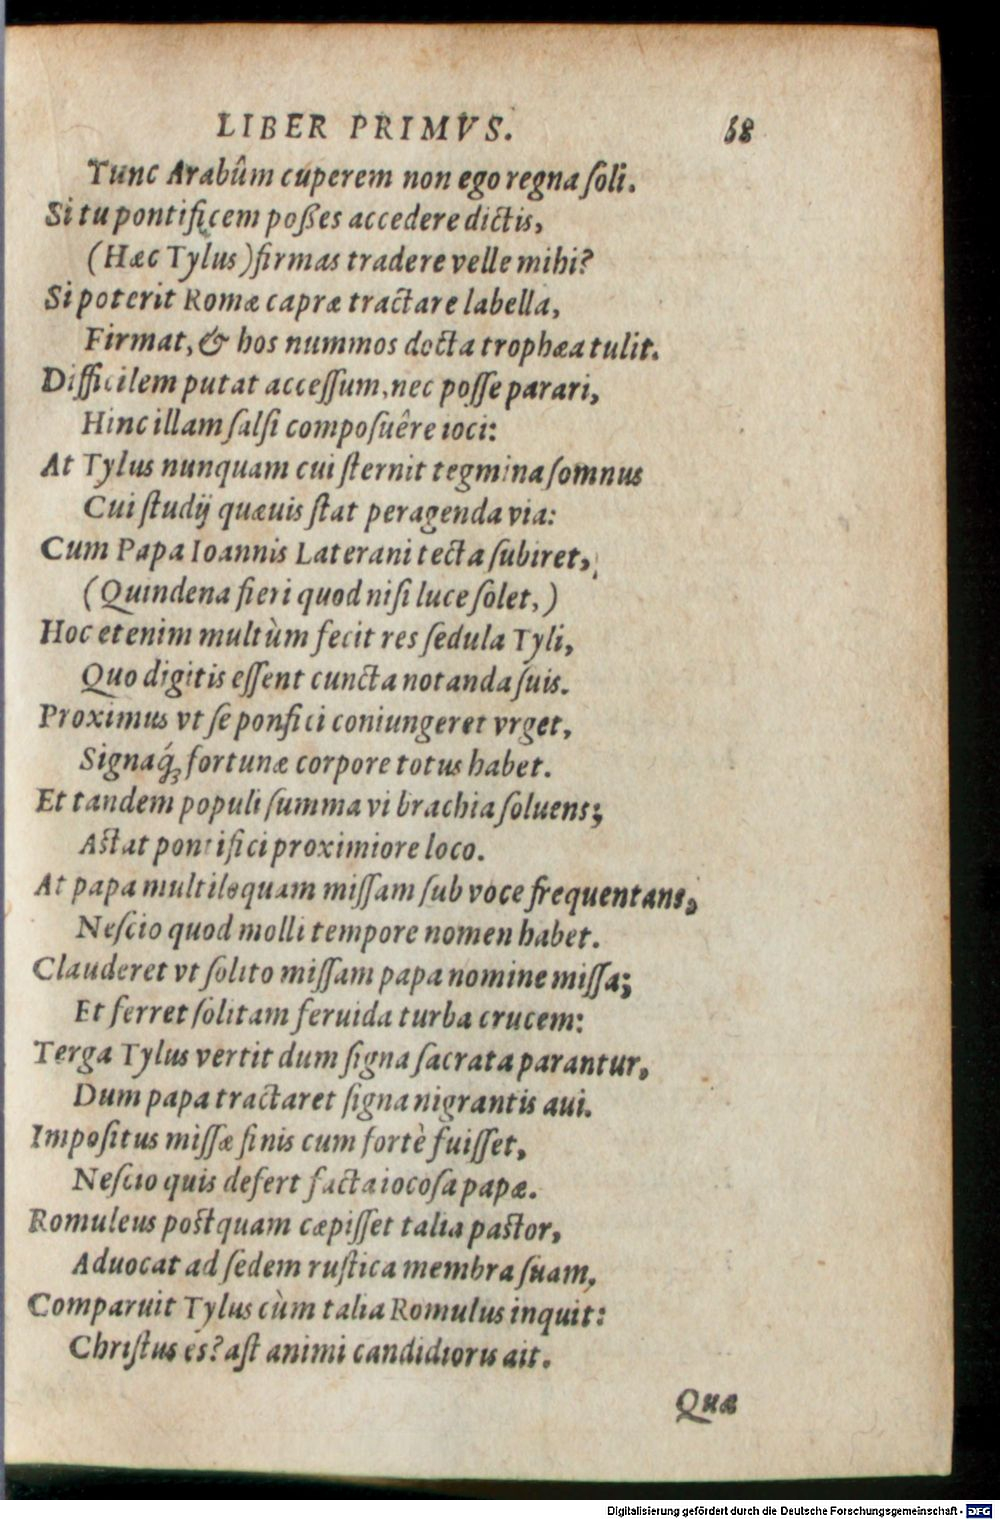 LIBER PRIMVS. 68
Tunc Arabûm cuperem non ego regna ſoli.
Si tu pontificem poßes accedere dictis,
(Hæc Tylus) firmas tradere velle mihi?
Si poterit Romæ capræ tractare labella,
Firmat, & hos nummos docta trophæa tulit.
Difficilem putat acceſſum, nec poſſe parari,
Hinc illam ſalſi compoſuêre ioci:
At Tylus nunquam cui ſternit tegmina ſomnus
Cui ſtudij quæuis ſtat peragenda via:
Cum Papa Ioannis Laterani tecta ſubiret,
(Quindena fieri quod niſi luce ſolet,)
Hoc etenim multùm fecit res ſedula Tyli,
Quo digitis eſſent cuncta notanda ſuis.
Proximus vt ſe ponfici coniungeret vrget,
Signaq́ꝫ fortunæ corpore totus habet.
Et tandem populi ſumma vi brachia ſoluens;
Aſtat pontifici proximiore loco.
At papa multiloquam miſſam ſub voce frequentans,
Neſcio quod molli tempore nomen habet.
Clauderet vt ſolito miſſam papa nomine miſſa;
Et ferret ſolitam feruida turba crucem:
Terga Tylus vertit dum ſigna ſacrata parantur,
Dum papa tractaret ſigna nigrantis aui.
Impoſitus miſſæ finis cum fortè fuiſſet,
Neſcio quis defert facta iocoſa papæ.
Romuleus poſtquam cæpiſſet talia paſtor,
Aduocat ad ſedem ruſtica membra ſuam,
Comparuit Tylus cùm talia Romulus inquit:
Chriſtus es? aſt animi candidioris ait.
Quæ
Digitalisierung gefördert durch die Deutsche Forschungsgemeinschaft - DFG